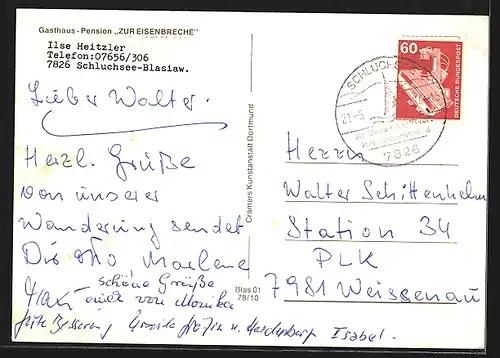 Gasthaus - Pension „ZUR EISENBRECHE"
Ilse Heitzler
Telefon:07656/306
7826 Schluchsee-Blasiaw.
Lieber Walter.
Herzl. Grüße
von unserer
Wanderung sendet
Dir Otto Marlene
schöne Grüße
auch von Monika
gute Besserung
Isabel.
Cramers Kunstanstalt Dortmund
Blas 01
78/10
SCHLUCHSEE
7826
60
DEUTSCHE BUNDESPOST
Herrn
Walter Schittenhelm
Station 34
PLK
7981 Weissenau